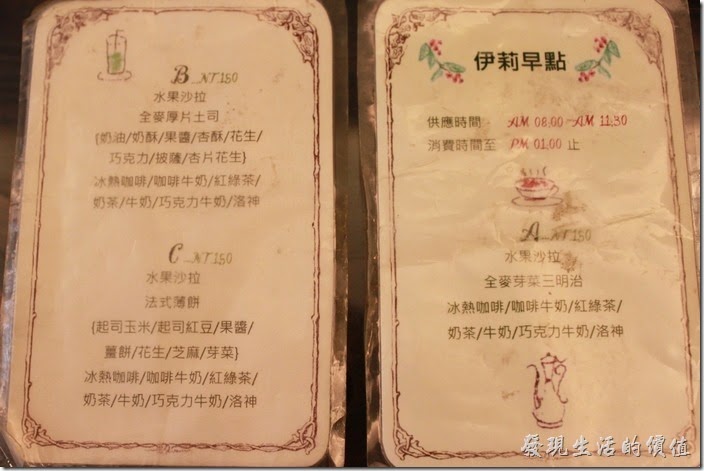 B NT180
水果沙拉
全麥厚片土司
{奶油/奶酥/果醬/杏酥/花生/
巧克力/披薩/杏片花生}
冰熱咖啡/咖啡牛奶/紅綠茶/
奶茶/牛奶/巧克力牛奶/洛神
C NT180
水果沙拉
法式薄餅
{起司玉米/起司紅豆/果醬/
薑餅/花生/芝麻/芽菜}
冰熱咖啡/咖啡牛奶/紅綠茶/
奶茶/牛奶/巧克力牛奶/洛神
伊莉早點
供應時間: AM 08.00~AM 11.30
消費時間至 PM 01.00 止
A NT180
水果沙拉
全麥芽菜三明治
冰熱咖啡/咖啡牛奶/紅綠茶/
奶茶/牛奶/巧克力牛奶/洛神
發現生活的價值